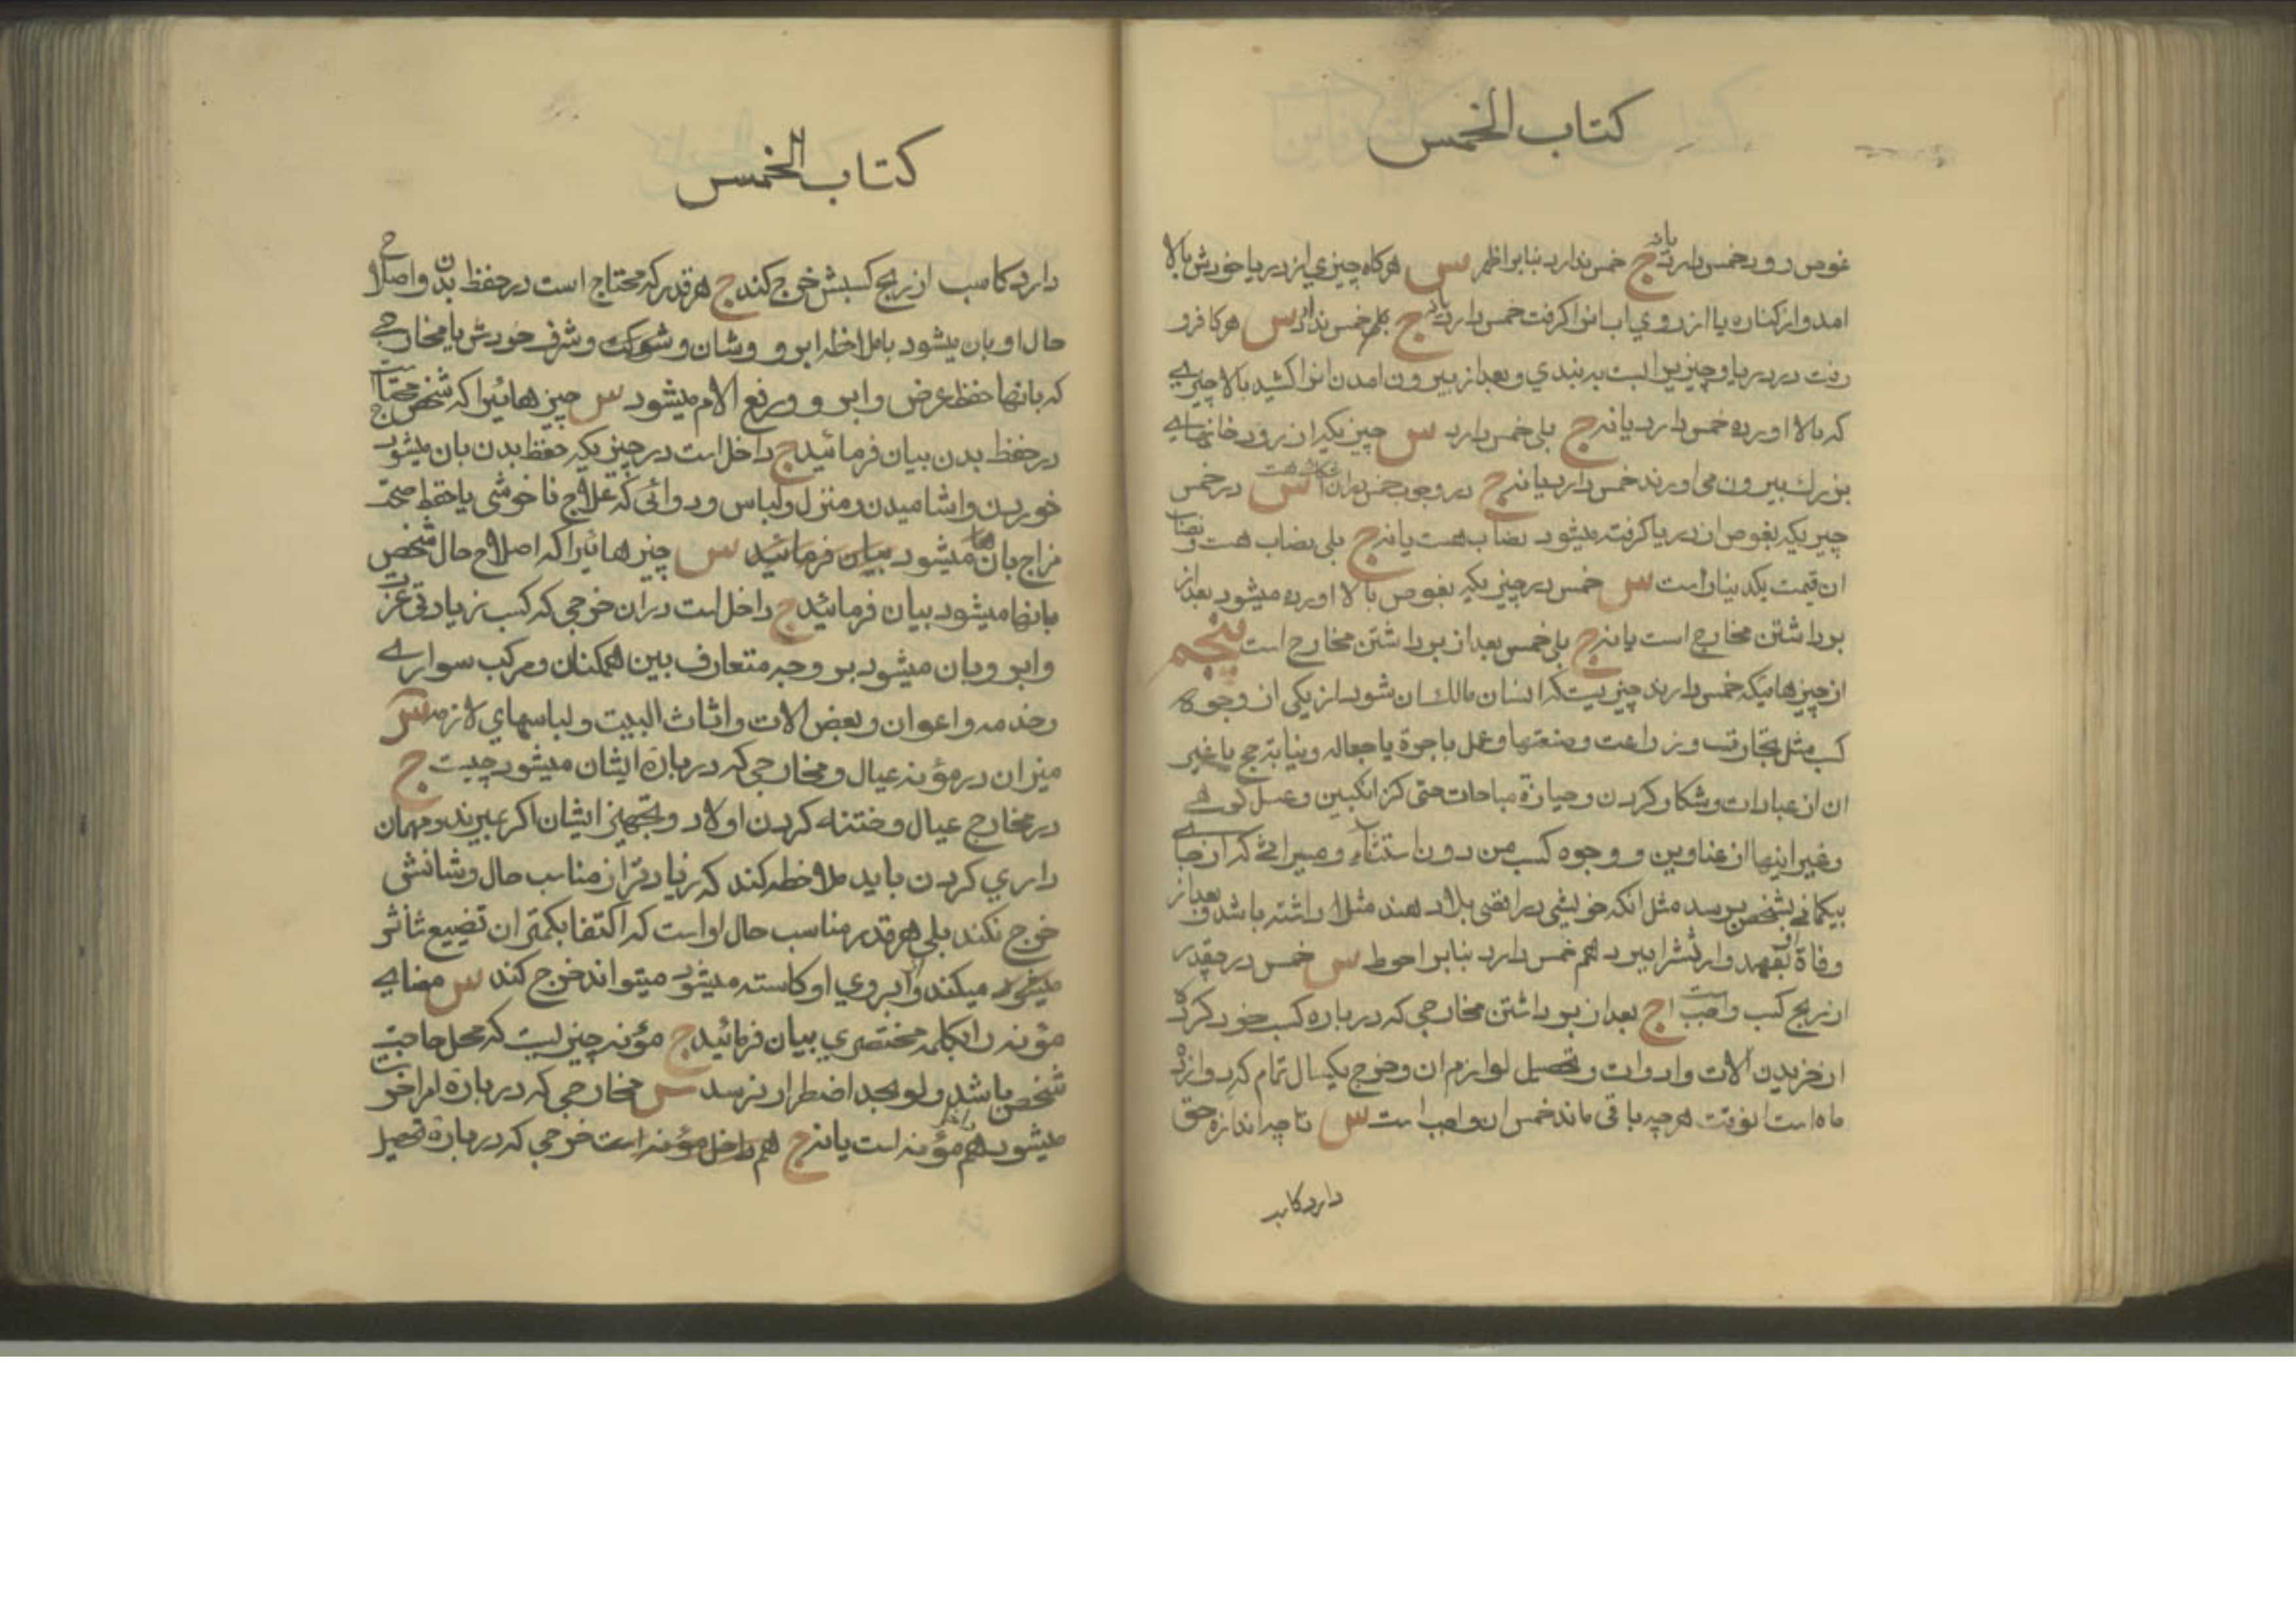 كتاب الخمس
غوص رود خمس دارد یا نه ج خمس ندارد بنابر اظهر س هرکاه چیزي از دریا خودش بالا
امد و از کناره یا از روي اب انرا کرفت خمس دارد یا نه ج بلی خمس ندارد س هرکا فرو
رفت در دریا و چیزیرا بست به بندي و بعد از بیرون امدن انرا کشید بالا چیزے
که بالا اورده خمس دارد یا نه ج بلی خمس دارد س چیزیکه از رودخانهاے
بزرك بیرون می اورند خمس دارد یا نه ج در وجوب خمس دران اشکال است س در خمس
چیزیکه بغوص از دریا کرفته میشود نصاب هست یا نه ج بلی نصاب هست و نصاب
ان قیمت یکدینار است س خمس در چیزیکه بغوص بالا اورده میشود بعد از
برداشتن مخارج است یا نه ج بلی خمس بعد از برداشتن مخارج است پنجم
از چیزهائیکه خمس دارند چیزیست که انسان مالك ان شود از یکی از وجوه
کسب مثل تجارت و زراعت و صنعتها و عمل باجرة یا جعاله و نیابته حج یا غیر
ان از عبادات و شکار کردن و حیازة مباحات حتی کز انکبین و عسل کوهے
و غیر اینها از عناوین و وجوه کسب من دون استثناء و میراثے که از جاے
بیکمانے بشخص برسد مثل انکه خویشی در اقصی بلاد هند مثلا داشته باشد و بعد از
وفاة ارثشرا ببرد هم خمس دارد بنابر احوط س خمس در چقدر
از ربح کسب واجب است ج بعد از برداشتن مخارجی که درباره کسب خود کرده
از خریدن الات و ادوات و تحصیل لوازم ان و خرج یکسال تمام که دوازده
ماه است انوقت هرچه باقی ماند خمس ان واجب است س تا چه اندازه حق
دارد کاسب
كتاب الخمس
دارد کاسب از ربح کسبش خرج کند ج هر قدر که محتاج است در حفظ بدن و اصلاح
حال او بان میشود بملاحظه ابرو و شان و شوکت و شرف خودش یا مخارجے
که بانها حفظ عرض و ابرو و رفع الام میشود س چیزهائیرا که شخص محتاج است
در حفظ بدن بیان فرمائید ج داخل است در چیزیکه حفظ بدن بان میشود
خوردن و اشامیدن و منزل و لباس و دوائی که علاج ناخوشی یا حفظ صحت
مزاج بان ها میشود بیان فرمائید س چیزهائیرا که اصلاح حال شخص
بانها میشود بیان فرمائید ج داخل است دران خرجی که کسب زیادتی عزت
و ابرو بان میشود بر وجه متعارف بین همکنان و مرکب سوارے
و خدمه و اعوان و بعض الات و اثاث البیت و لباسهاي لازمه س
میزان در مؤنه عیال و مخارجی که درباره ایشان میشود چیست ج
در مخارج عیال و ختنه کردن اولاد و تجهیز ایشان اکر بمیرند و مهمان
داري کردن باید ملاحظه کند که زیادتر از مناسب حال و شانشی
خرج نکند بلی هر قدر مناسب حال او است که اکتفا بکمتر ان تضییع شأنش
میکند و ابروي او کاسته میشود میتواند خرج کند س معناے
مؤنه را بکلمه مختصري بیان فرمائید ج مؤنه چیزیست که محل حاجت
شخص باشد و لو بحد اضطرار نرسد س مخارجی که درباره امر اخرت
میشود هم مؤنه است یا نه ج هم داخل مؤنه است خرجی که درباره تحصیل